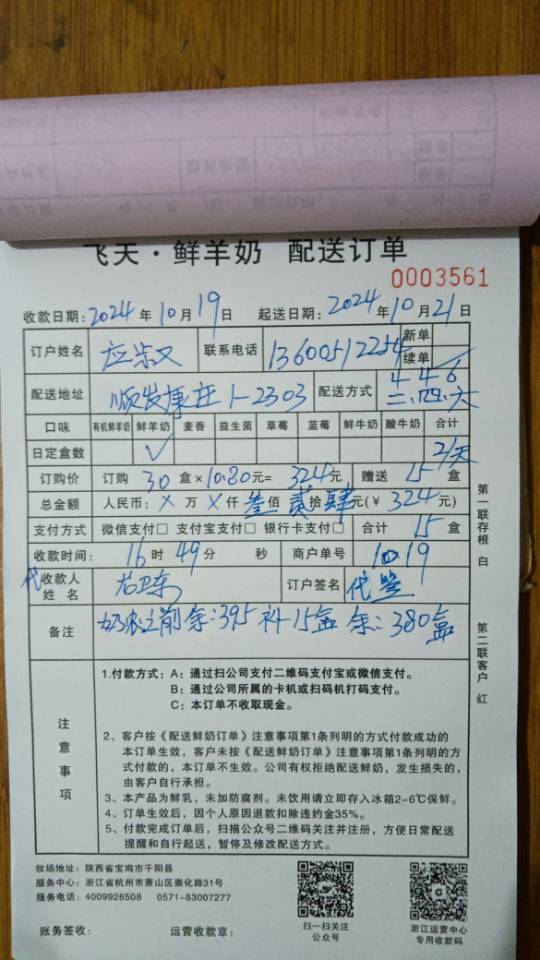 飞天·鲜羊奶 配送订单
0003561
收款日期:2024年10月19日 起送日期:2024年10月21日
订户姓名 联系电话 新单
续单
配送地址 顺发康庄1-2303 配送方式 4 4 6
二.四.六
口味 有机鲜羊奶 鲜羊奶 麦香 益生菌 草莓 蓝莓 鲜牛奶 酸牛奶 合计
日定盒数 ✓ 2/天
订购价 订购30盒×10.80元=324元 赠送15盒
总金额 人民币:×万×仟叁佰贰拾肆元(¥324元)
支付方式 微信支付□ 支付宝支付□ 银行卡支付□ 合计15盒
收款时间:16时49分 秒 商户单号 1019
代收款人
姓名 订户签名 代签
备注 余:395 补15盒 余:380盒
注意事项
1.付款方式:A:通过扫公司支付二维码支付宝或微信支付。
B:通过公司所属的卡机或扫码机打码支付。
C:本订单不收取现金。
2、客户按《配送鲜奶订单》注意事项第1条列明的方式付款成功的
本订单生效,客户未按《配送鲜奶订单》注意事项第1条列明的方
式付款的,本订单不生效。公司有权拒绝配送鲜奶,发生损失的,
由客户自行承担。
3、本产品为鲜乳,未加防腐剂。未饮用请立即存入冰箱2-6℃保鲜。
4、订单生效后,因个人原因退款扣除违约金35%。
5、付款完成订单后,扫描公众号二维码关注并注册,方便日常配送
提醒和自行起送,暂停及修改配送方式。
第一联存根 白
第二联客户 红
牧场地址:陕西省宝鸡市千阳县
服务中心:浙江省杭州市萧山区崇化路31号
服务电话:4009926508 0571-83007277
账务签收: 运营收款章:
扫一扫关注
公众号
浙江运营中心
专用收款码